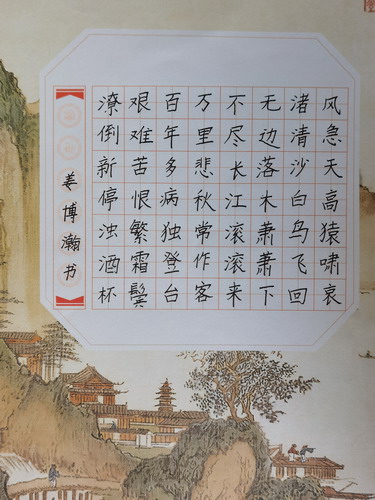 风急天高猿啸哀
渚清沙白鸟飞回
无边落木萧萧下
不尽长江滚滚来
万里悲秋常作客
百年多病独登台
艰难苦恨繁霜鬓
潦倒新停浊酒杯
姜博瀚书